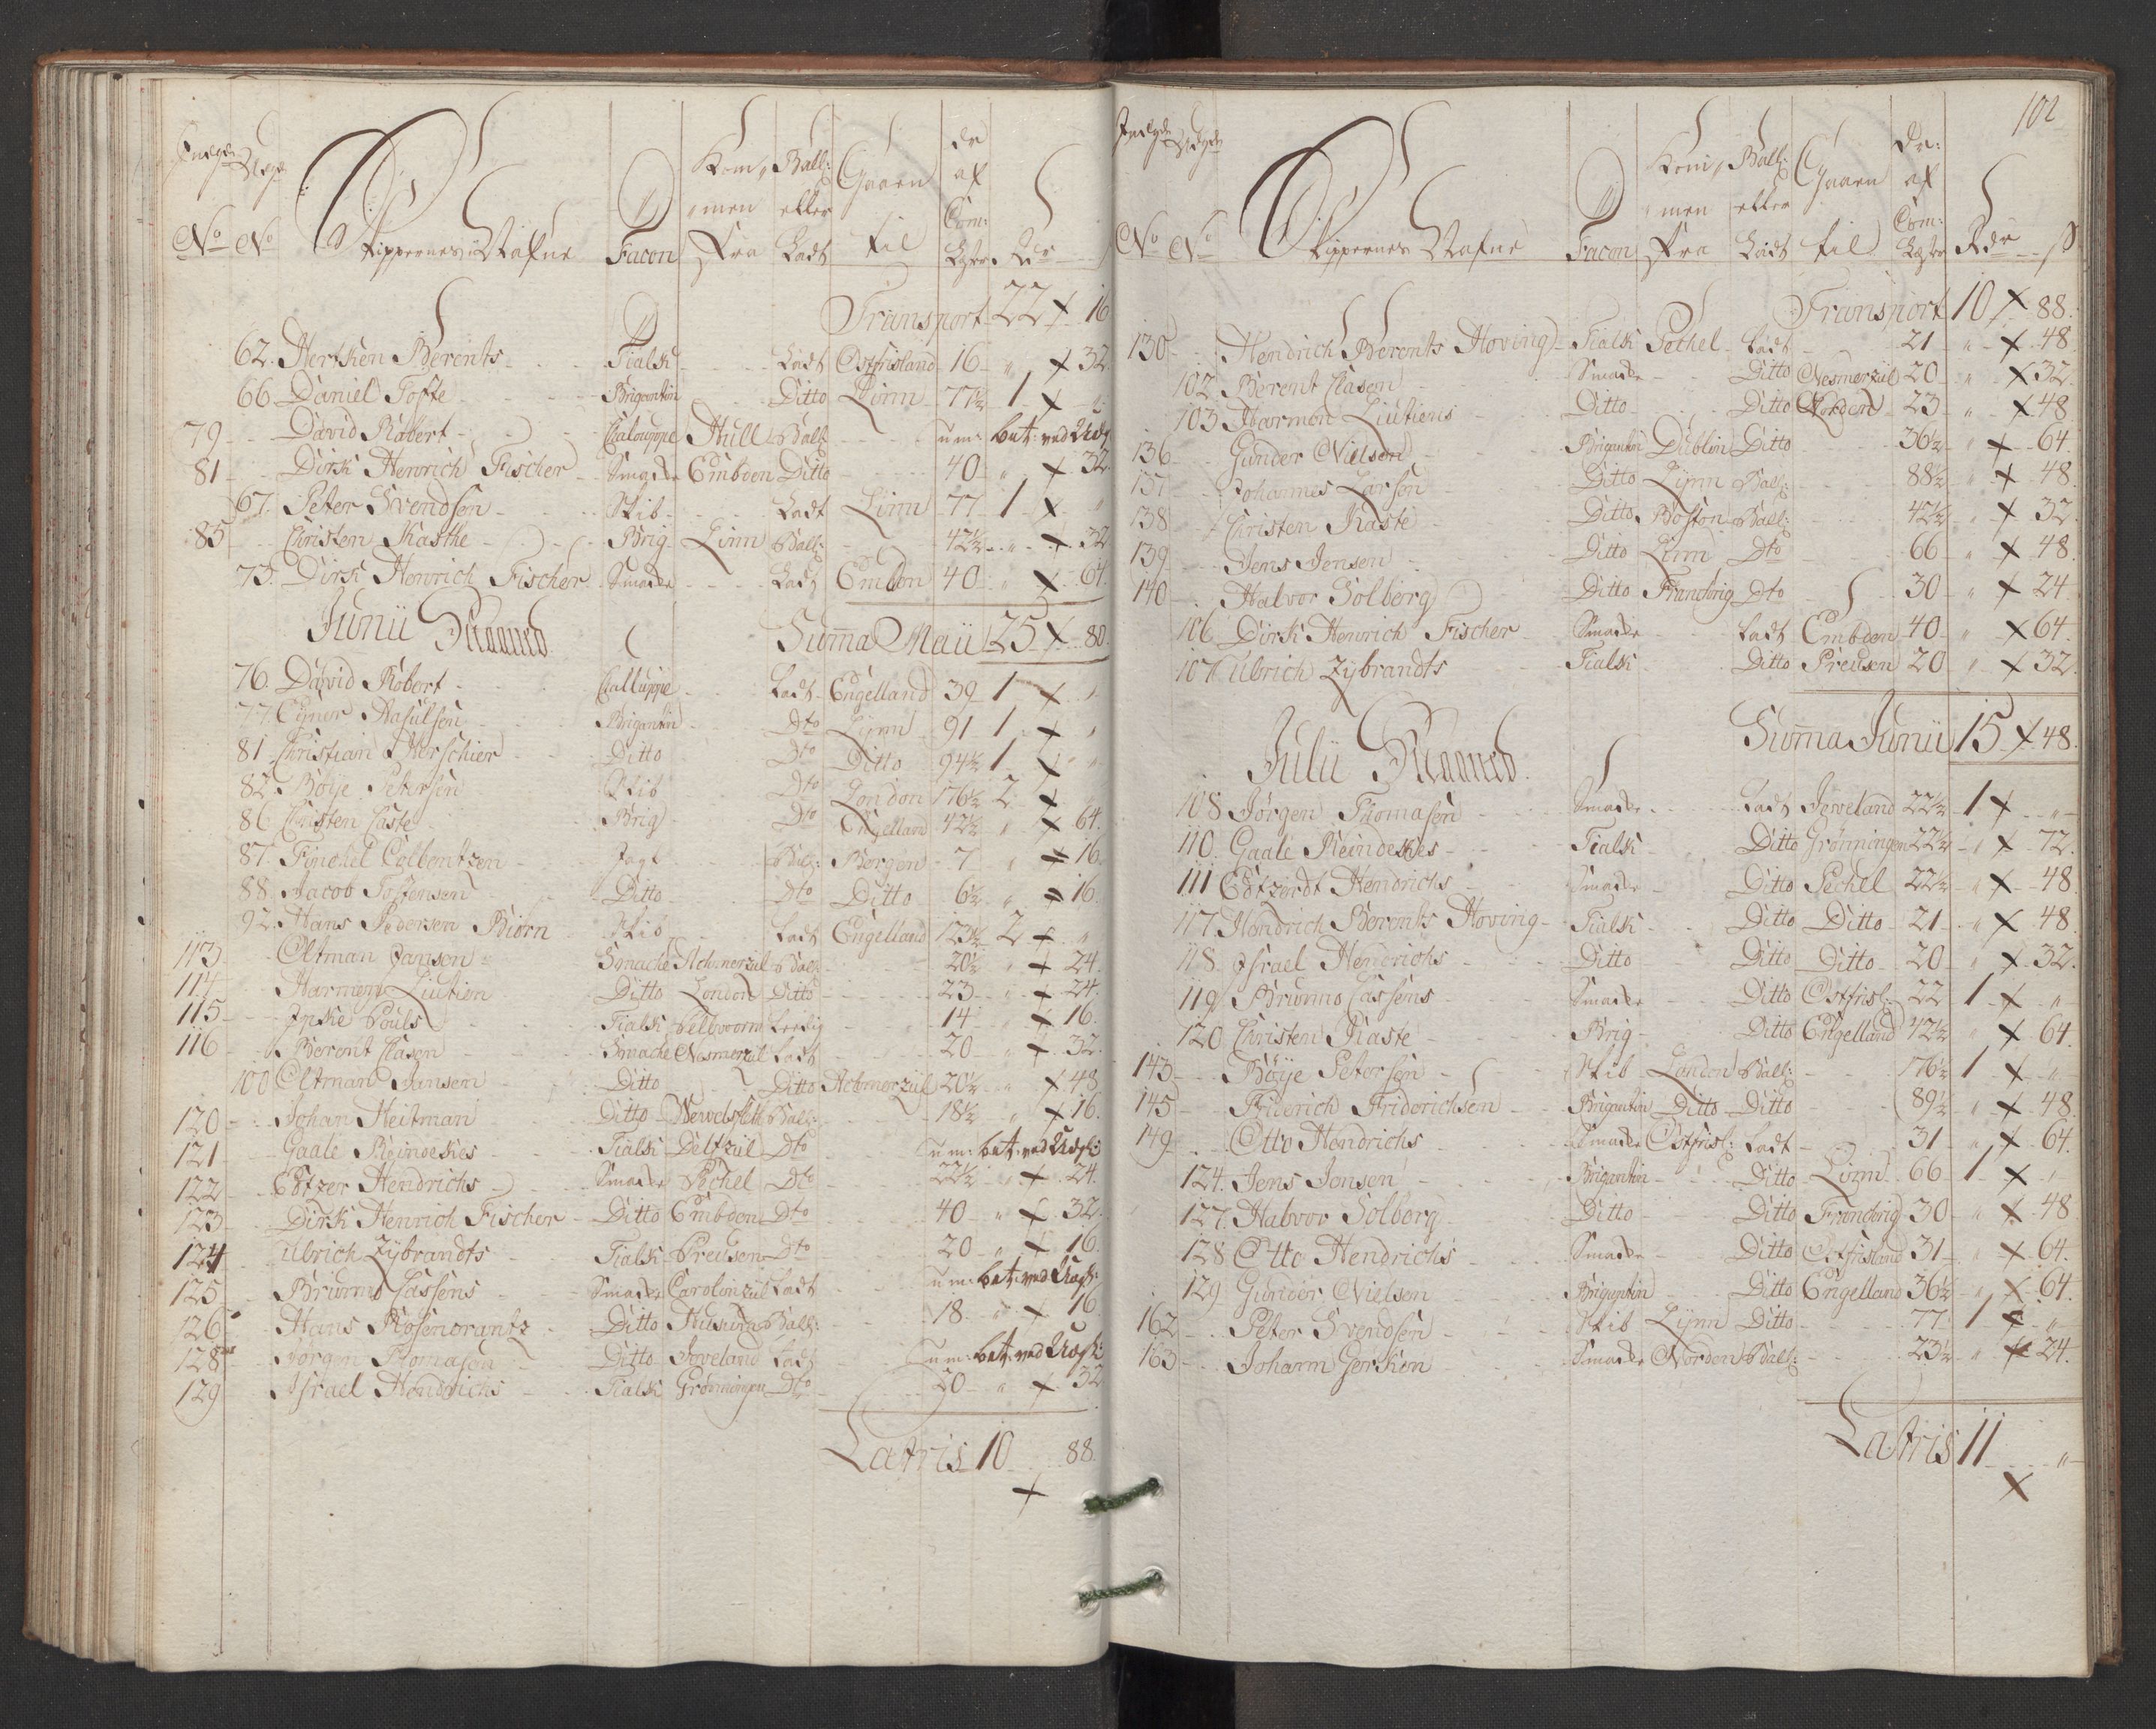 No No Skippernes Nafne Facon Kommen Fra Ball: eller Ladt Gaaen til Dr af Com: Lster Rdr
Transport 22 16
62. Hertken Berents Tialk Ladt Ostfrisland 16 " 32
66 Daniel Tofte Brigantin Ditto Linn 77½ 1 "
79 David Robert Chalouppe Hull Ball um: bet: ved
81 Dirk Henrich Fischer Smakke Embden Ditto 40 " 32
67. Peter Svendsen Skib Ladt Linn 77 1 "
85 Christen Kasthe Brig Linn Ball: 42½ " 32
73. Dirk Henrich Fischer Smakke Ladt Embden 40 " 64.
Junii Maaned Summa Maii 25 80.
76. David Robert Challuppe Ladt Engelland 39 1 "
77. Ejner Aasulsen Brigantin Dto Lynn 91 1 "
81. Christian Werschier Ditto Dto Ditto 94½ 1 "
82. Böye Petersen Skib Dto London 176½ 2 "
86 Christen Caste Brig Dto Engelland 42½ " 64.
87. Finchel Colbentzen Jagt Ball: Bergen 7 " 16
88. Jacob Tostensen Ditto Dto Ditto 6½ " 16.
92. Hans Pedersen Biörn Skib Ladt Engelland 123½ 2 "
113 Oltman Jansen Smacke Achmerzül Ball: 20½ " 24
114 Harmen Liutien Ditto London Ditto 23 " 24.
115 Ipske Pouls Tialk Pellworm Ledig 14 " 16.
116 Berent Clasen Smacke Nesmerzül Ladt 20 " 32.
100 Oltman Jansen Ditto Ditto Achmerzül 20½ " 48
120 Johan Heitman Ditto Wewelsfleth Ball: 18½ " 16.
121 Gaale Meindekes Tialk Delfzül Dto um: bet: ved
122 Edtzer Hendrichs Smakke Pechel Dto 22½ " 24.
123 Dirk Henrich Fischer Ditto Embden Dto 40 " 32.
124 Ulrich Zybrandts Tialk Preusen Dto 20 " 16.
125 Brunno Cassens Smakke Carolinzül Ladt um: bet: ved
126 Hans Rosencrantz Ditto Husum Ball: 18 " 16
128 Jörgen Thomasen Ditto Jeveland Ladt um: bet: ved
129 Israel Hendrichs Tialk Grönningen Dto 20 " 32
Latris 10 88.
102
No No Skippernes Nafne Facon Kommen Fra Ball: eller Ladt Gaaen til Dr: af Com: Lster Rdr ß
Transport 10 88.
130 Hendrich Berents Hoving Tialk Pechel Ladt 21 " 48
102 Berent Clasen Smakke Ditto Nesmerzül 20 " 32.
103 Harmen Liutiens Ditto Ditto Norden 23 " 48
136 Gunder Nielsen Brigantin Dublin Ditto 36½ " 64.
137 Johannes Larsen Ditto Lynn Ball: 88½ " 48
138 Christen Kaste Ditto Boston Ball: 42½ " 32
139 Jens Jensen Ditto Linn Dto 66 " 48
140 Halvor Solberg Ditto Dto 30 " 24
106 Dirk Henrich Fischer Smakke Ladt Embden 40 " 64.
107 Ulrich Zybrandts Tialk Ditto Preusen 20 " 32.
Summa Junii 15 48.
Julii Maaned
108 Jörgen Thomasen Smakke Ladt Jeveland 22½ 1 "
110. Gaale Meindekes Tialk Ditto Grönningen 22½ " 72.
111 Edtzerdt Hendrichs Smakke Ditto Pechel 22½ " 48
117. Hendrich Berents Hoving Tialk Ditto Ditto 21 " 48
118 Israel Hendrichs Ditto Ditto Ditto 20 " 32.
119 Brunno Cassens Smakke Ditto Ostfrisl: 22 1 "
120 Christen Kaste Brig Ditto Engelland 42½ " 64.
143 Böye Petersen Skib London Ball: 176½ 1 "
145 Friderich Friderichsen Brigantin Ditto Ditto 89½ " 48.
149 Otto Hendrichs Smakke Ostfrisl: Ladt 31 " 64.
124. Jens Jensen Brigantin Ditto Linn 66 1 "
127. Halvor Solberg Ditto Ditto 30 " 48
128 Otto Hendrichs Smakke Ditto Ostfrisland 31 " 64.
129 Gunder Nielsen Brigantin Ditto Engelland 36½ " 64.
162 Peter Svendsen Skib Lynn Ditto 77 1 "
163 Johann Gerken Smakke Norden Ball: 23½ " 24.
Latris 11 "